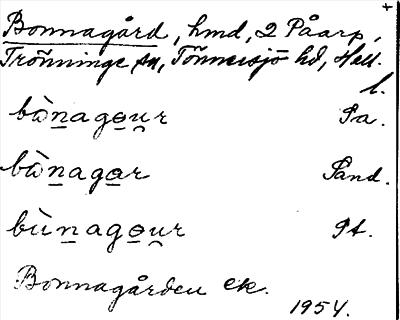 +
Bonnagård, hmd, 2 Påarp,
Trönninge sn, Tönnersjö hd, Hall.
l.
bȯ̀n̲agɵu̯r Pa.
bȯ̀n̲aga̲r Pand.
bùn̲agɵ̲u̯r Pt.
Bonnagården ek.
1954.